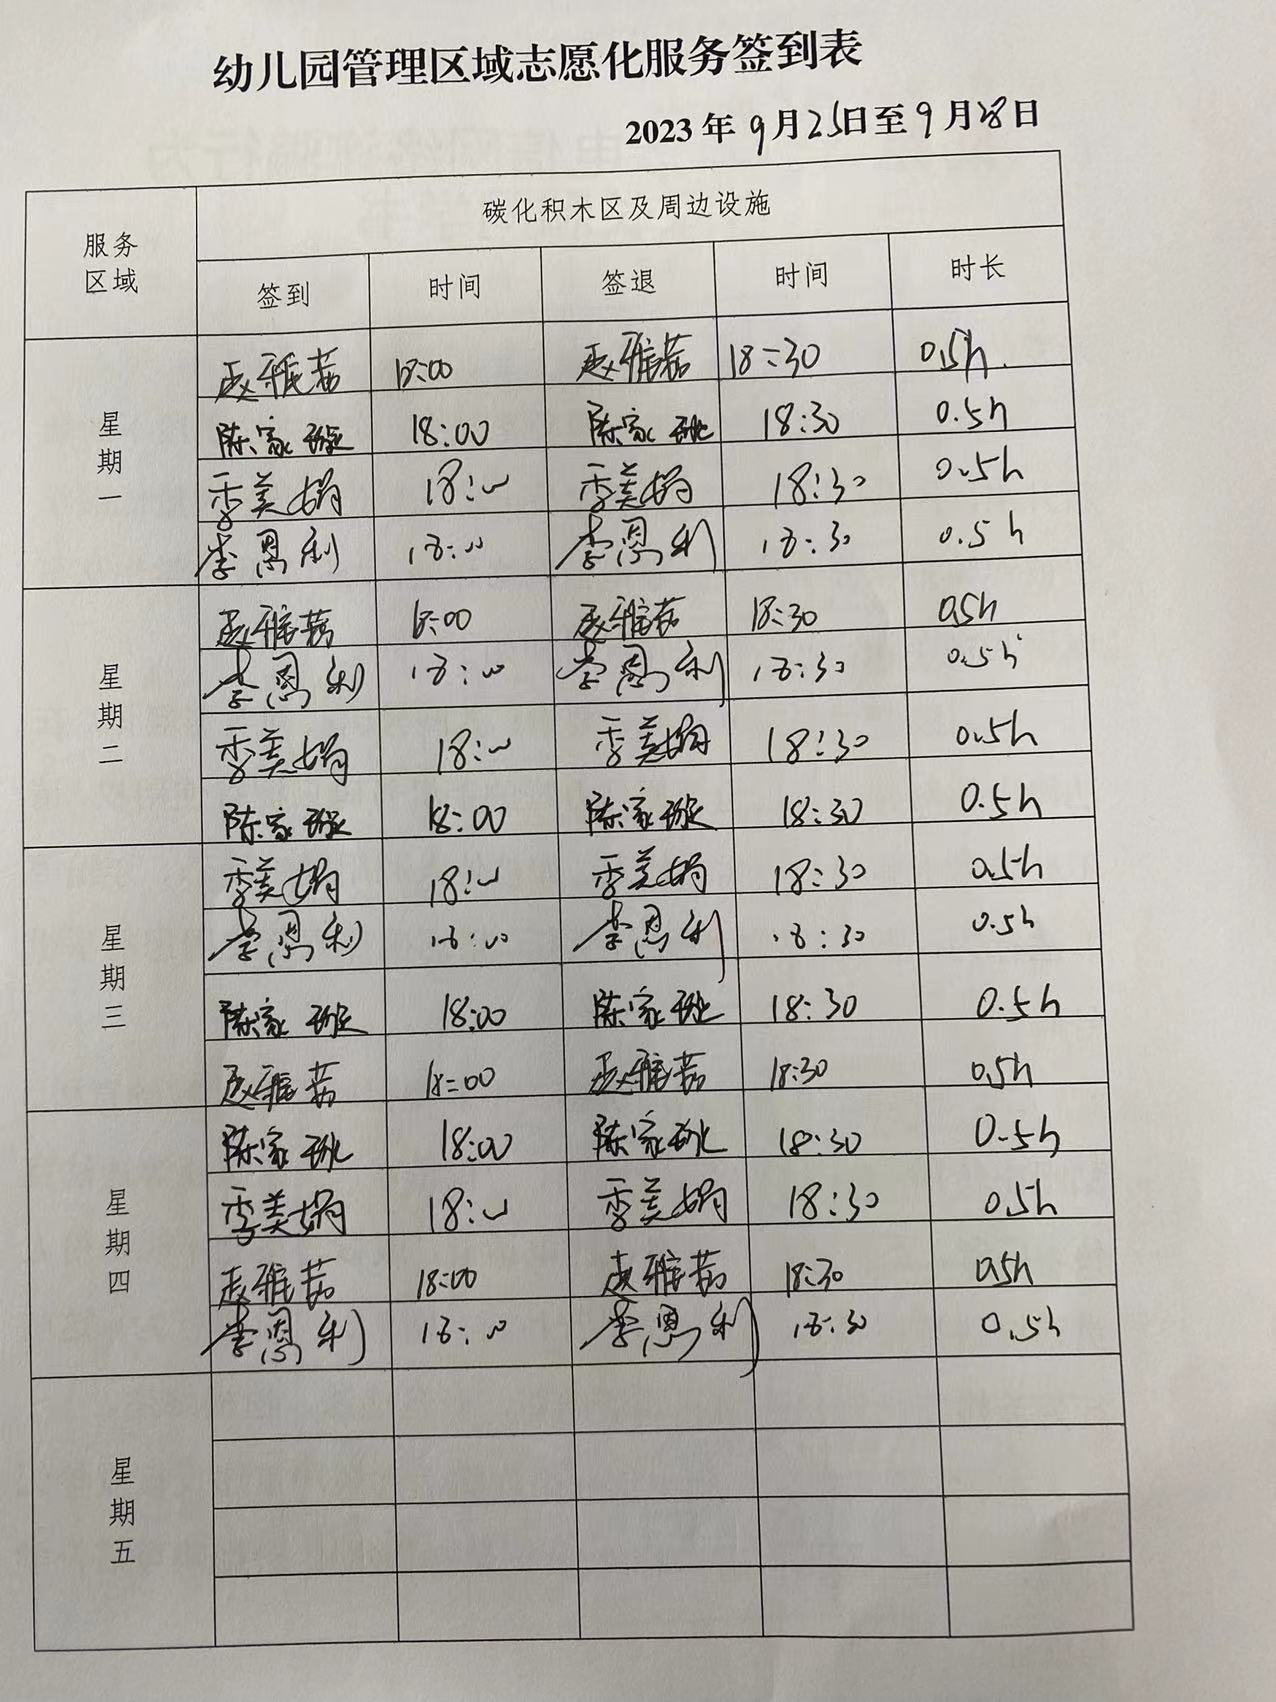 幼儿园管理区域志愿化服务签到表
2023年9月25日至9月28日
服务区域 碳化积木区及周边设施
签到 时间 签退 时间 时长
星期一
赵雅茹 18:00 赵雅茹 18:30 0.5h.
陈家璇 18:00 陈家璇 18:30 0.5h
季美娟 18:00 季美娟 18:30 0.5h
李恩利 18:00 李恩利 18:30 0.5h
星期二
赵雅茹 18:00 赵雅茹 18:30 0.5h
李恩利 18:00 李恩利 18:30 0.5h
季美娟 18:00 季美娟 18:30 0.5h
陈家璇 18:00 陈家璇 18:30 0.5h
星期三
季美娟 18:00 季美娟 18:30 0.5h
李恩利 18:00 李恩利 18:30 0.5h
陈家璇 18:00 陈家璇 18:30 0.5h
赵雅茹 18:00 赵雅茹 18:30 0.5h
星期四
陈家璇 18:00 陈家璇 18:30 0.5h
季美娟 18:00 季美娟 18:30 0.5h
赵雅茹 18:00 赵雅茹 18:30 0.5h
李恩利 18:00 李恩利 18:30 0.5h
星期五